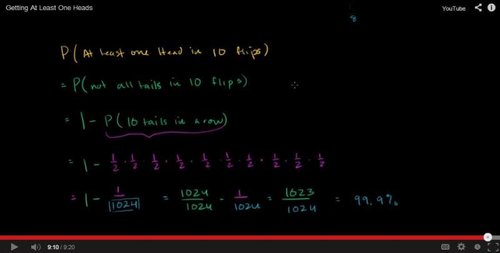 Getting At Least One Heads
YouTube
8
P(At least one Head in 10 flips)
= P(not all tails in 10 flips)
= 1 - P(10 tails in a row)
= 1 - 1/2 · 1/2 · 1/2 · 1/2 · 1/2 · 1/2 · 1/2 · 1/2 · 1/2 · 1/2
= 1 - 1/1024 = 1024/1024 - 1/1024 = 1023/1024 = 99.9%
9:10 / 9:20